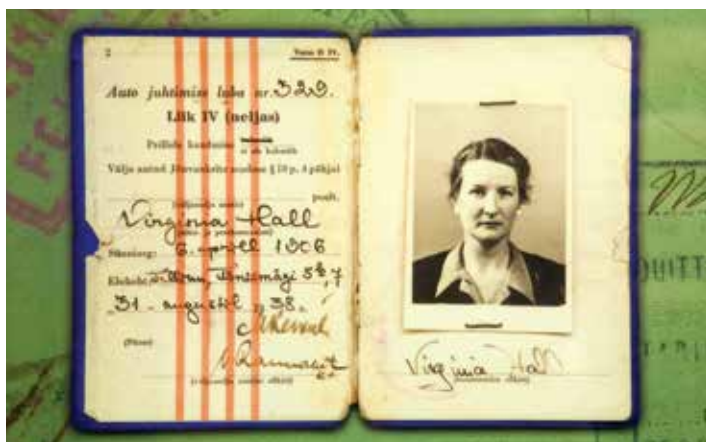 2
Vorm B IV.
Auto juhtimise luba nr. 329.
Liik IV (neljas)
Prillide kandmine
ei ole kohustlik
Välja antud Jõuvankrite seaduse § 10 p. 4 põhjal
poolt.
Virginia Hall
Sünniaeg: 6. aprill 1906
Elukoht: Tallinn, Tõnismägi 5
31. augustil 38.
(Pitsat)
Virginia Hall
QUITT